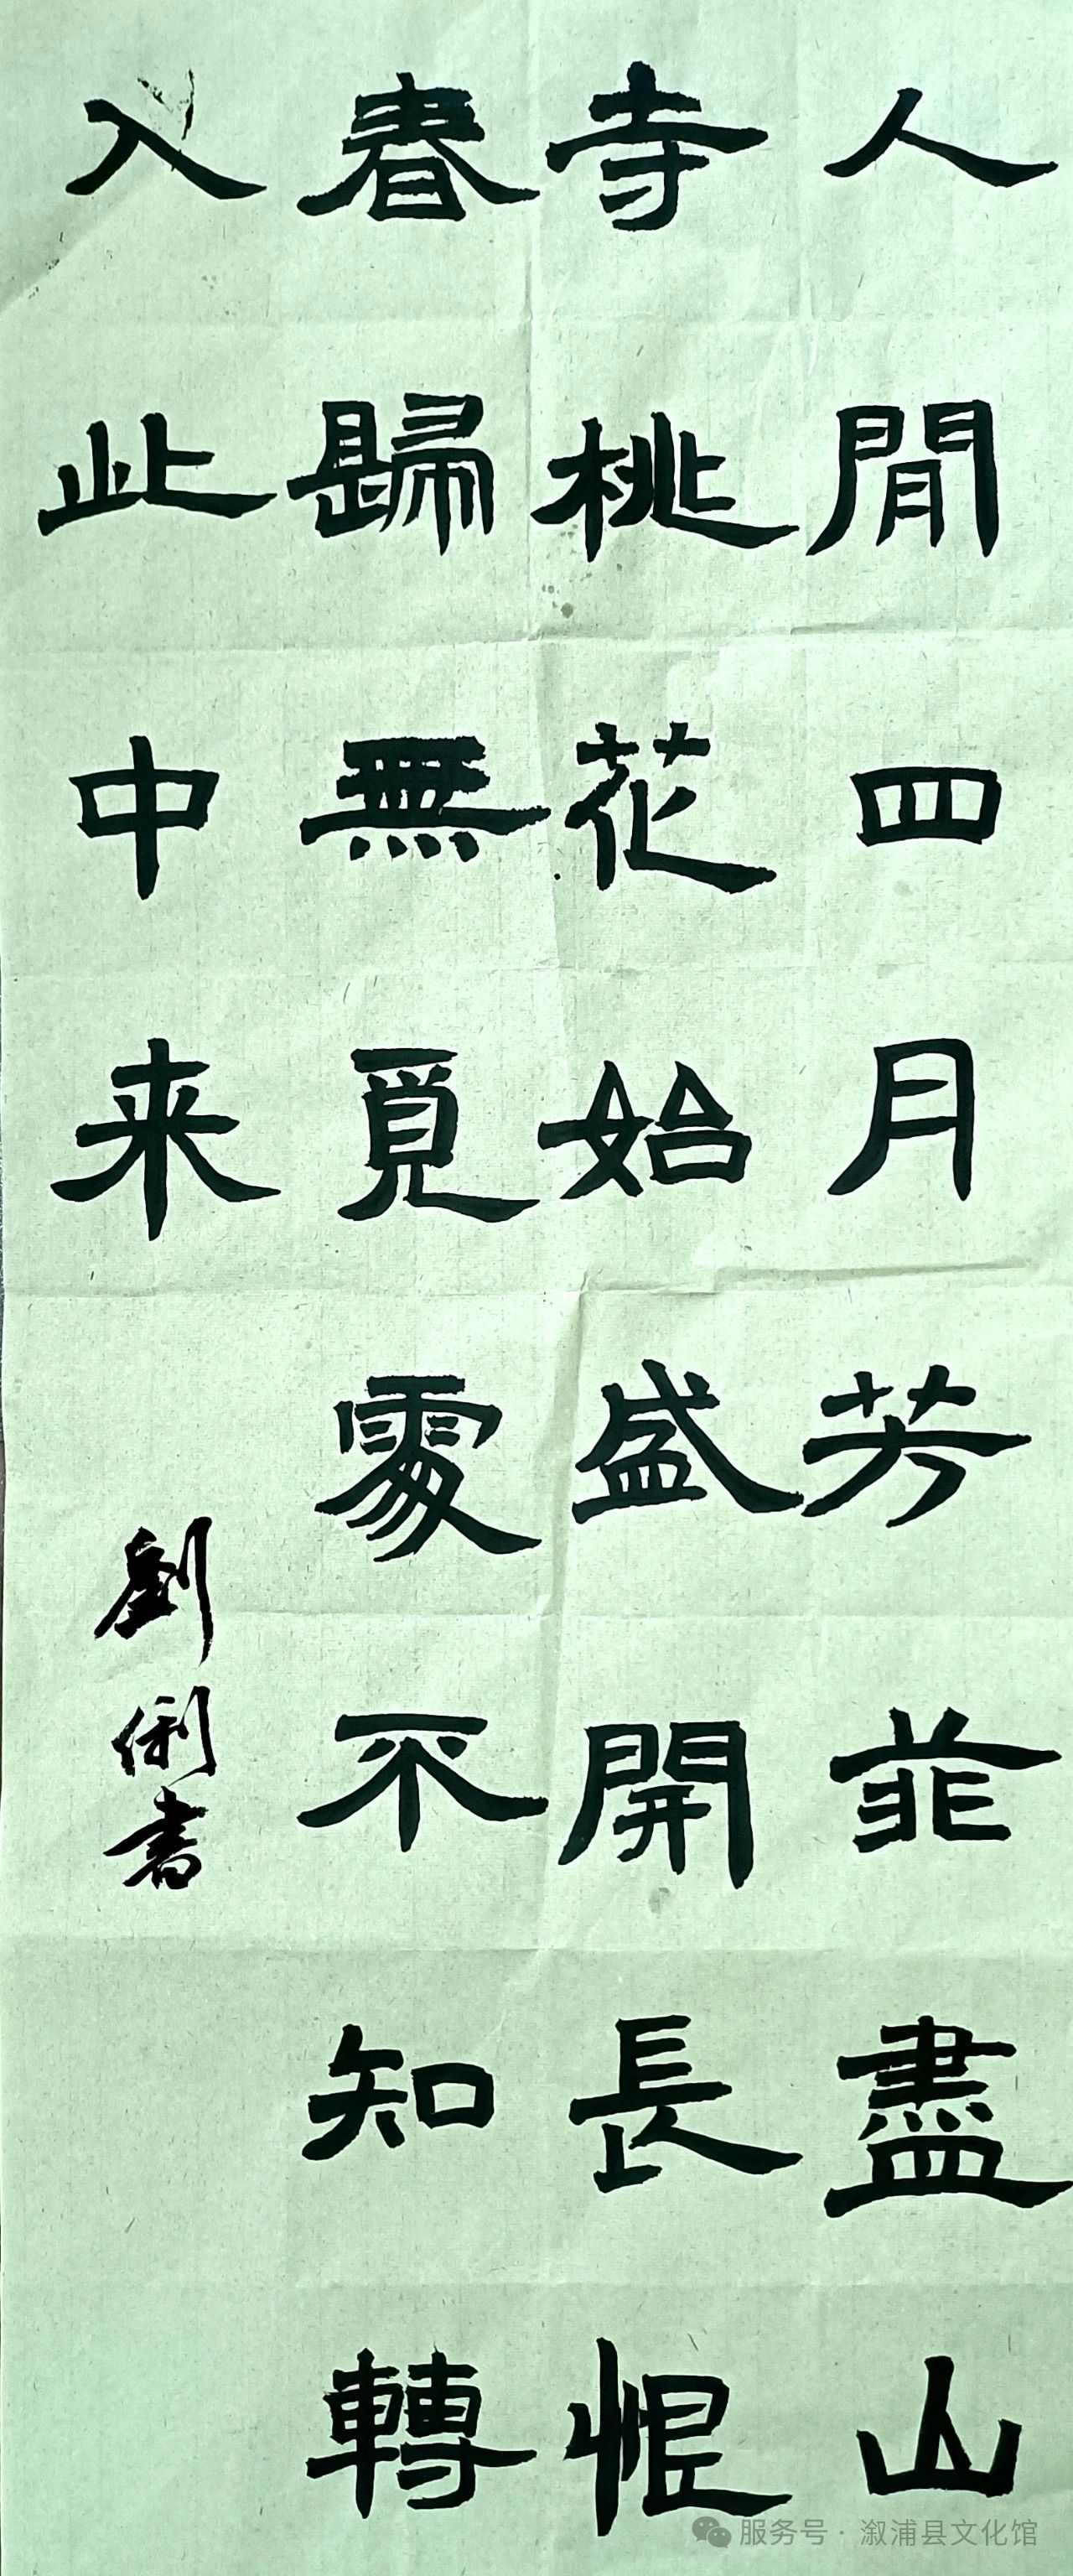 人閒四月芳菲盡山
寺桃花始盛開長恨
春歸無覓處不知轉
入此中来
劉俐書
服务号 · 溆浦县文化馆